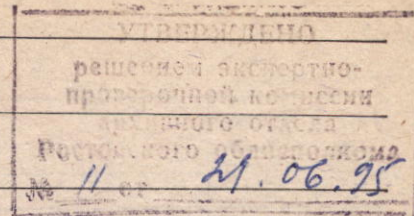 УТВЕРЖДЕНО
решением экспертно-
проверочной комиссии
архивного отдела
Ростовского облисполкома
№ 11 от 21.06.95